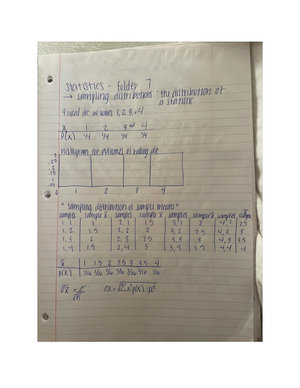 Statistics - folder 7
→ sampling distributions : the distribution of
a statistic
4 sided die w/ sides 1, 2, 3, & 4
X 1 2 3 4
P(X) 1/4 1/4 1/4 1/4
Histogram for outcomes of rolling die
0 1 2 3 4
"sampling distribution of sample means"
samples sample x̄ samples sample x̄ samples sample x̄ samples
1, 1 1 2, 1 1.5 3, 1 2 4, 1 2.5
1, 2 1.5 2, 2 2 3, 2 2.5 4, 2 3
1, 3 2 2, 3 2.5 3, 3 3 4, 3 3.5
1, 4 2.5 2, 4 3 3, 4 3.5 4, 4 4
x̄ 1 1.5 2 2.5 3 3.5 4
P(x̄) 1/16 2/16 3/16 4/16 3/16 2/16 1/16